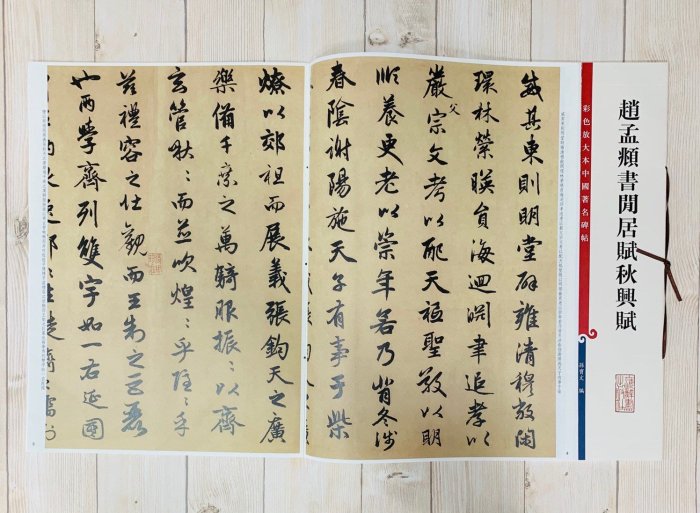 趙孟頫書閒居賦秋興賦
彩色放大本中國著名碑帖
孫寶文 編
威其東則明堂辟雍清穆敞閑
環林縈暎員海迴淵聿追孝以
嚴父宗文考以配天祗聖敬以明
順養更老以崇年若乃背冬涉
春陰謝陽施天子有事于柴
燎以郊祖而展義張鈞天之廣
樂備千乘之萬騎服振〻以齊
玄管啾〻而並吹煌〻乎隱〻乎
茲禮容之壯觀而王制之巨麗
也兩學齊列雙宇如一右延國